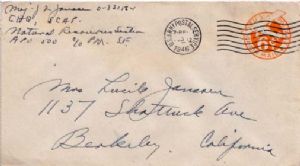 GHQ, SCAP.
Natural Resources Section
APO 500 c/o P.M. SF
U.S. ARMY POSTAL SERVICE
1946
Miss Lucile Janssen
1137 Shattuck Ave
Berkeley, California